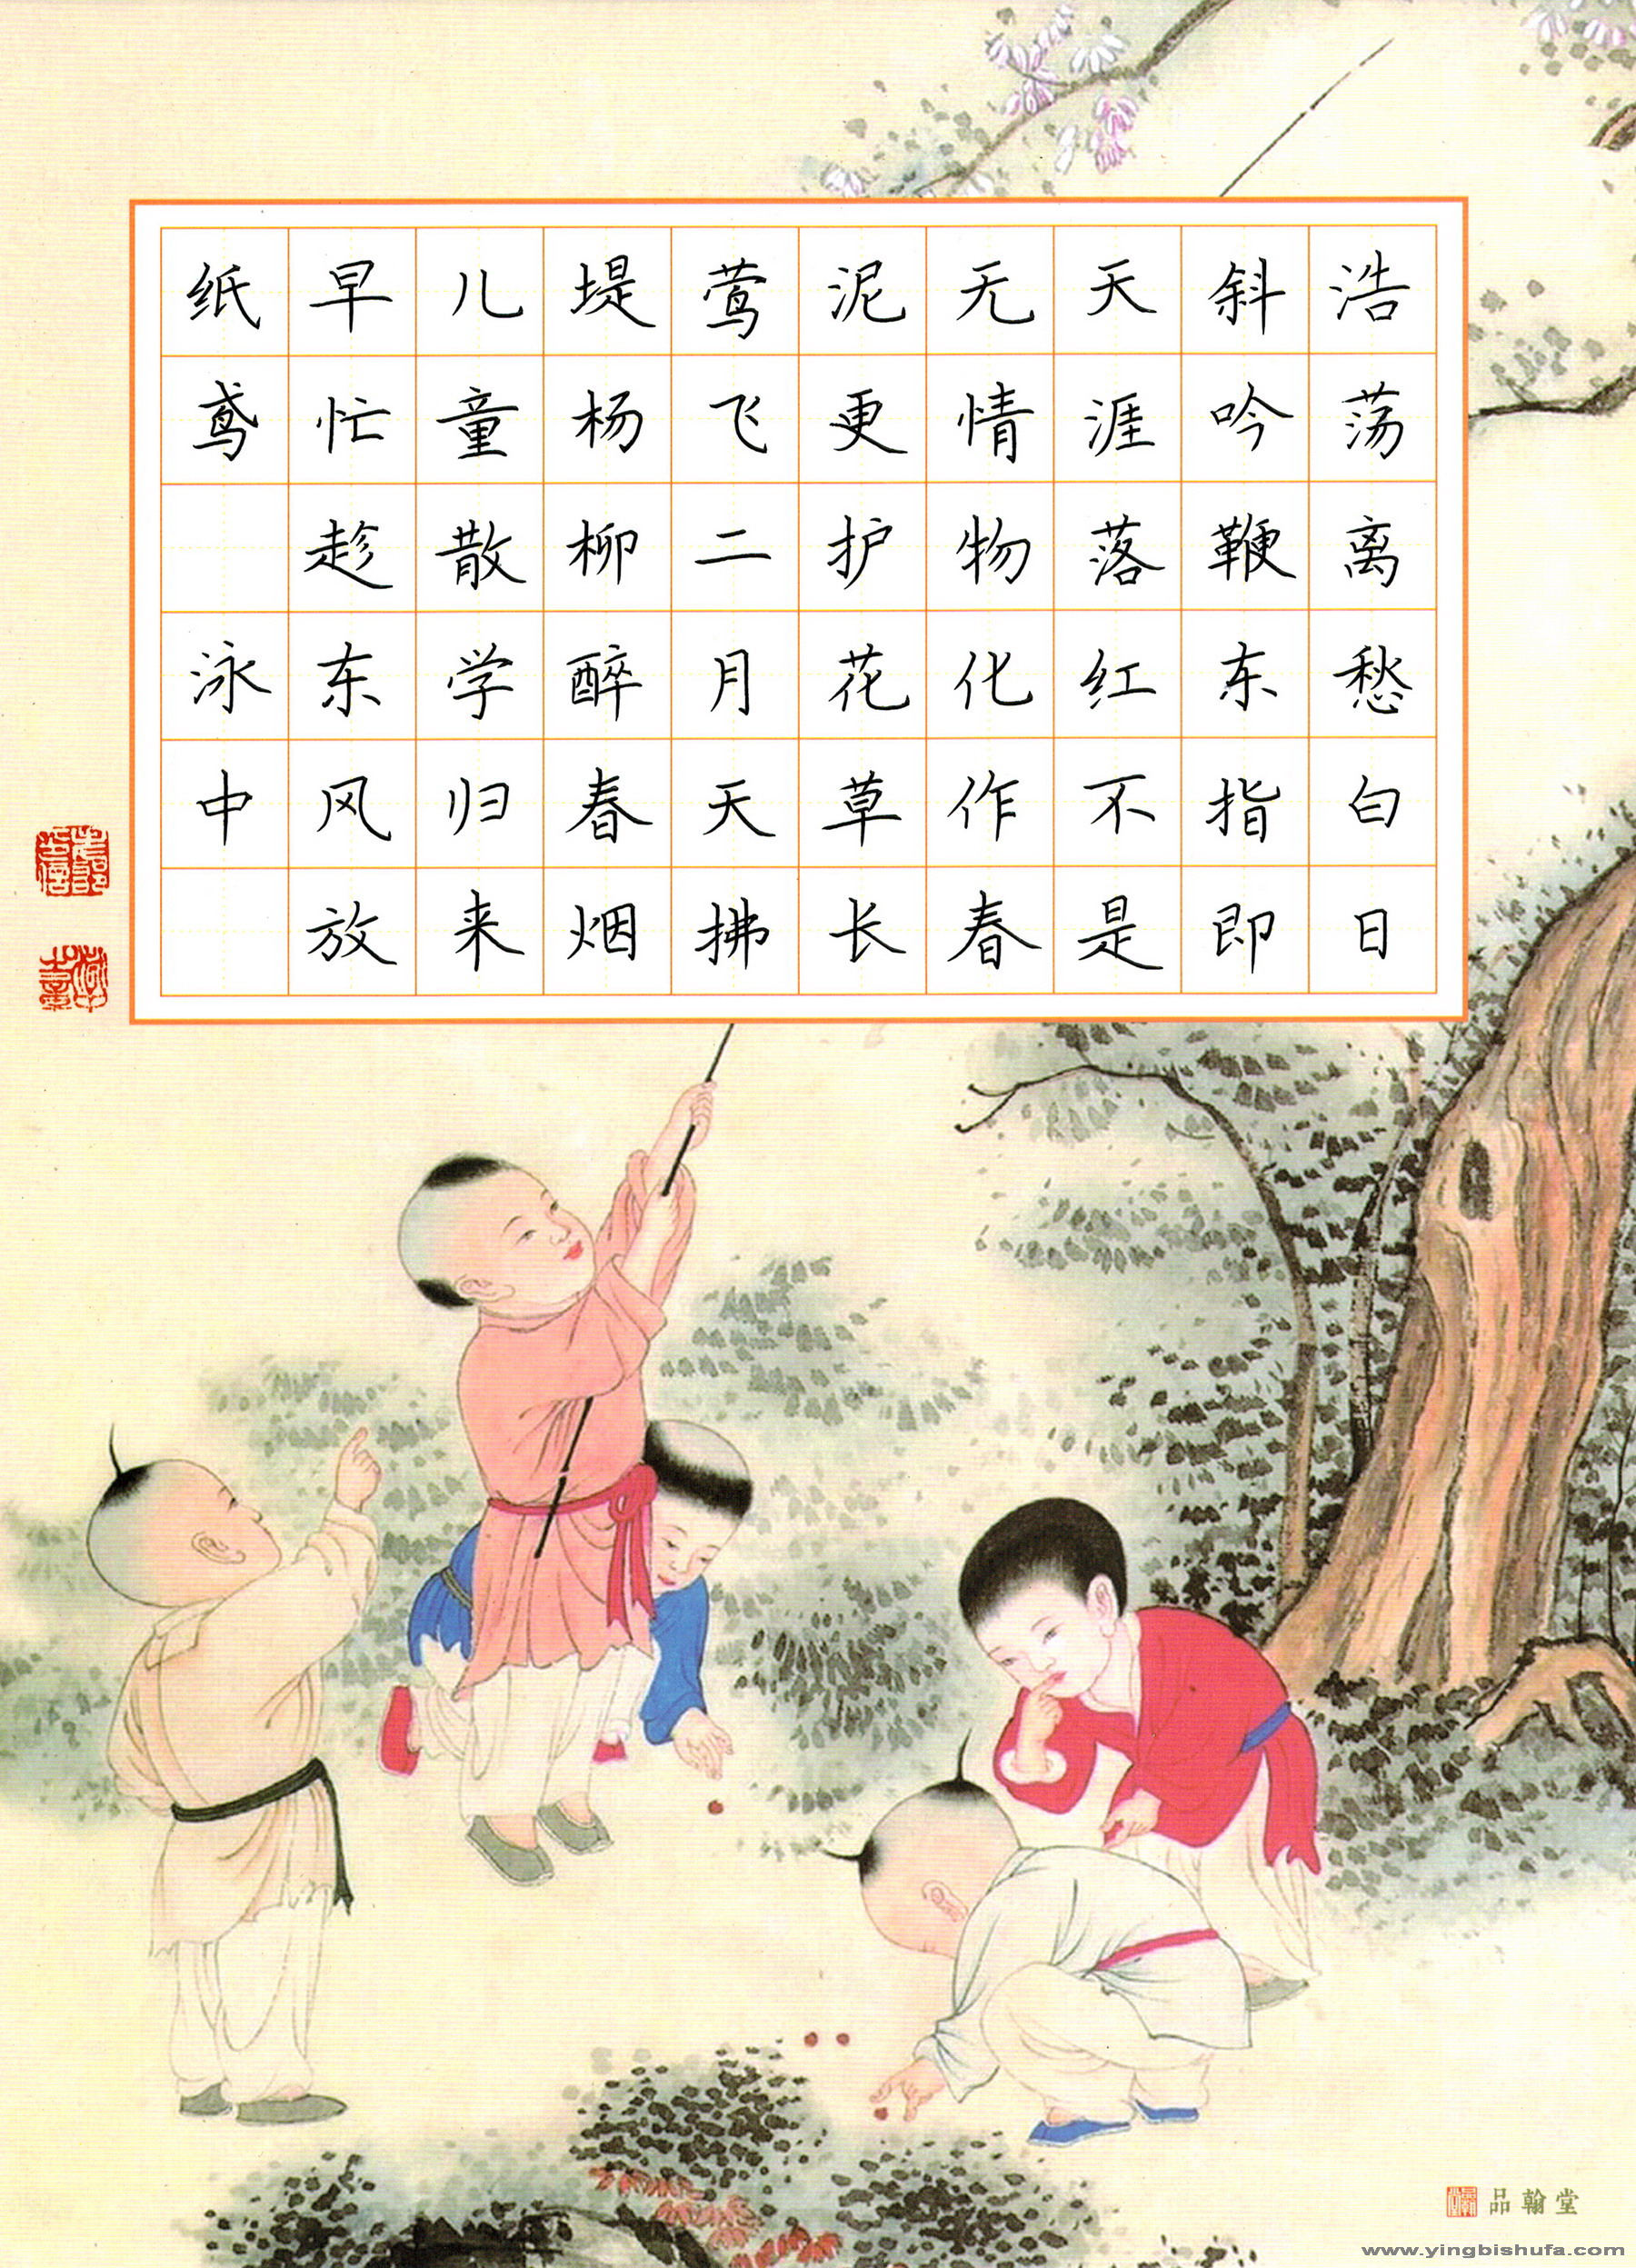 浩荡离愁白日
斜吟鞭东指即
天涯落红不是
无情物化作春
泥更护花草长
莺飞二月天拂
堤杨柳醉春烟
儿童散学归来
早忙趁东风放
纸鸢 泳中
品翰堂
www.yingbishufa.com